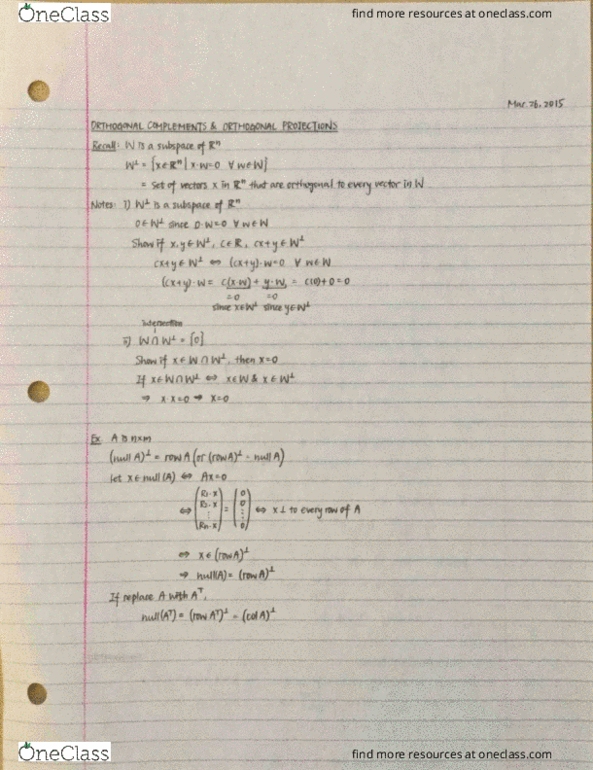 OneClass
find more resources at oneclass.com
Mar. 26, 2015
ORTHOGONAL COMPLEMENTS & ORTHOGONAL PROJECTIONS
Recall: W is a subspace of ℝⁿ
W⊥ = {x∈ℝⁿ | x·w=0 ∀ w∈W}
= set of vectors x in ℝⁿ that are orthogonal to every vector in W
Notes: 1) W⊥ is a subspace of ℝⁿ
0∈W⊥ since 0·w=0 ∀ w∈W
Show if x,y∈W⊥, c∈ℝ, cx+y∈W⊥
cx+y∈W⊥ ⇔ (cx+y)·w=0 ∀ w∈W
(cx+y)·w = c(x·w) + y·w = c(0)+0=0
=0 =0
since x∈W⊥ since y∈W⊥
intersection
W∩W⊥ = {0}
Show if x∈W∩W⊥, then x=0
If x∈W∩W⊥ ⇔ x∈W & x∈W⊥
⇒ x·x=0 ⇒ x=0
Ex. A is n×m
(null A)⊥ = row A (or (row A)⊥ = null A)
let x∈null(A) ⇔ Ax=0
⇔ (R₁·x R₂·x ⋮ Rₙ·x) = (0 0 ⋮ 0) ⇔ x⊥ to every row of A
⇔ x∈(row A)⊥
⇒ null(A) = (row A)⊥
If replace A with Aᵀ,
null(Aᵀ) = (row Aᵀ)⊥ = (col A)⊥
OneClass
find more resources at oneclass.com